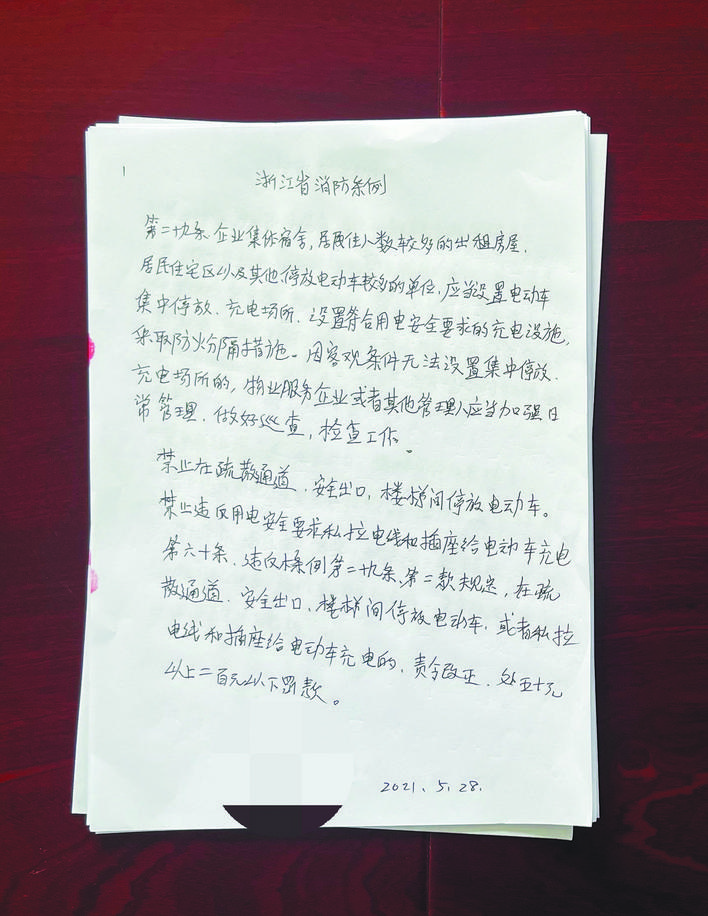 1
浙江省消防条例
第二十九条 企业集体宿舍,居住人数较多的出租房屋、
居民住宅区以及其他停放电动车较多的单位,应当设置电动车
集中停放、充电场所、设置符合用电安全要求的充电设施,
采取防火分隔措施。因客观条件无法设置集中停放、
充电场所的,物业服务企业或者其他管理人应当加强日
常管理、做好巡查,检查工作。
禁止在疏散通道、安全出口、楼梯间停放电动车。
禁止违反用电安全要求私拉电线和插座给电动车充电
第六十条、违反本条例第二十九条、第二款规定,在疏
散通道、安全出口、楼梯间停放电动车,或者私拉
电线和插座给电动车充电的、责令改正、处五十元
以上二百元以下罚款。
2021.5.28.